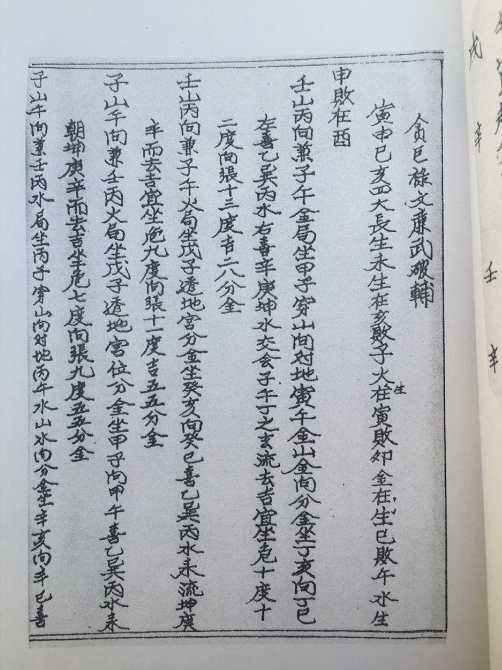 貪巨祿文廉武破輔
寅申巳亥四大長生未生在亥敗子火在生寅敗卯金在生巳敗午水生
申敗在酉
壬山丙向兼子午金局坐甲子穿山向对地寅午金山金向分金坐丁亥向丁巳
左喜乙巽丙水右喜辛庚坤水交会子午丁之玄流去吉宜坐危十度十
二度向張十三度吉二八分金
壬山丙向兼子午火局坐戊子透地宮分金坐癸亥向癸巳喜乙巽丙水来流坤庚
辛而去吉宜坐危九度向張十一度吉五五分金
子山午向兼壬丙火局坐戊子透地宮位分金坐甲子向甲午喜乙巽丙水来
朝坤庚辛而去吉坐危七度向張九度五五分金
子山午向兼壬丙水局坐丙子穿山向对地丙午水山水向分金坐辛亥向辛巳喜
戊
辛
壬
辛